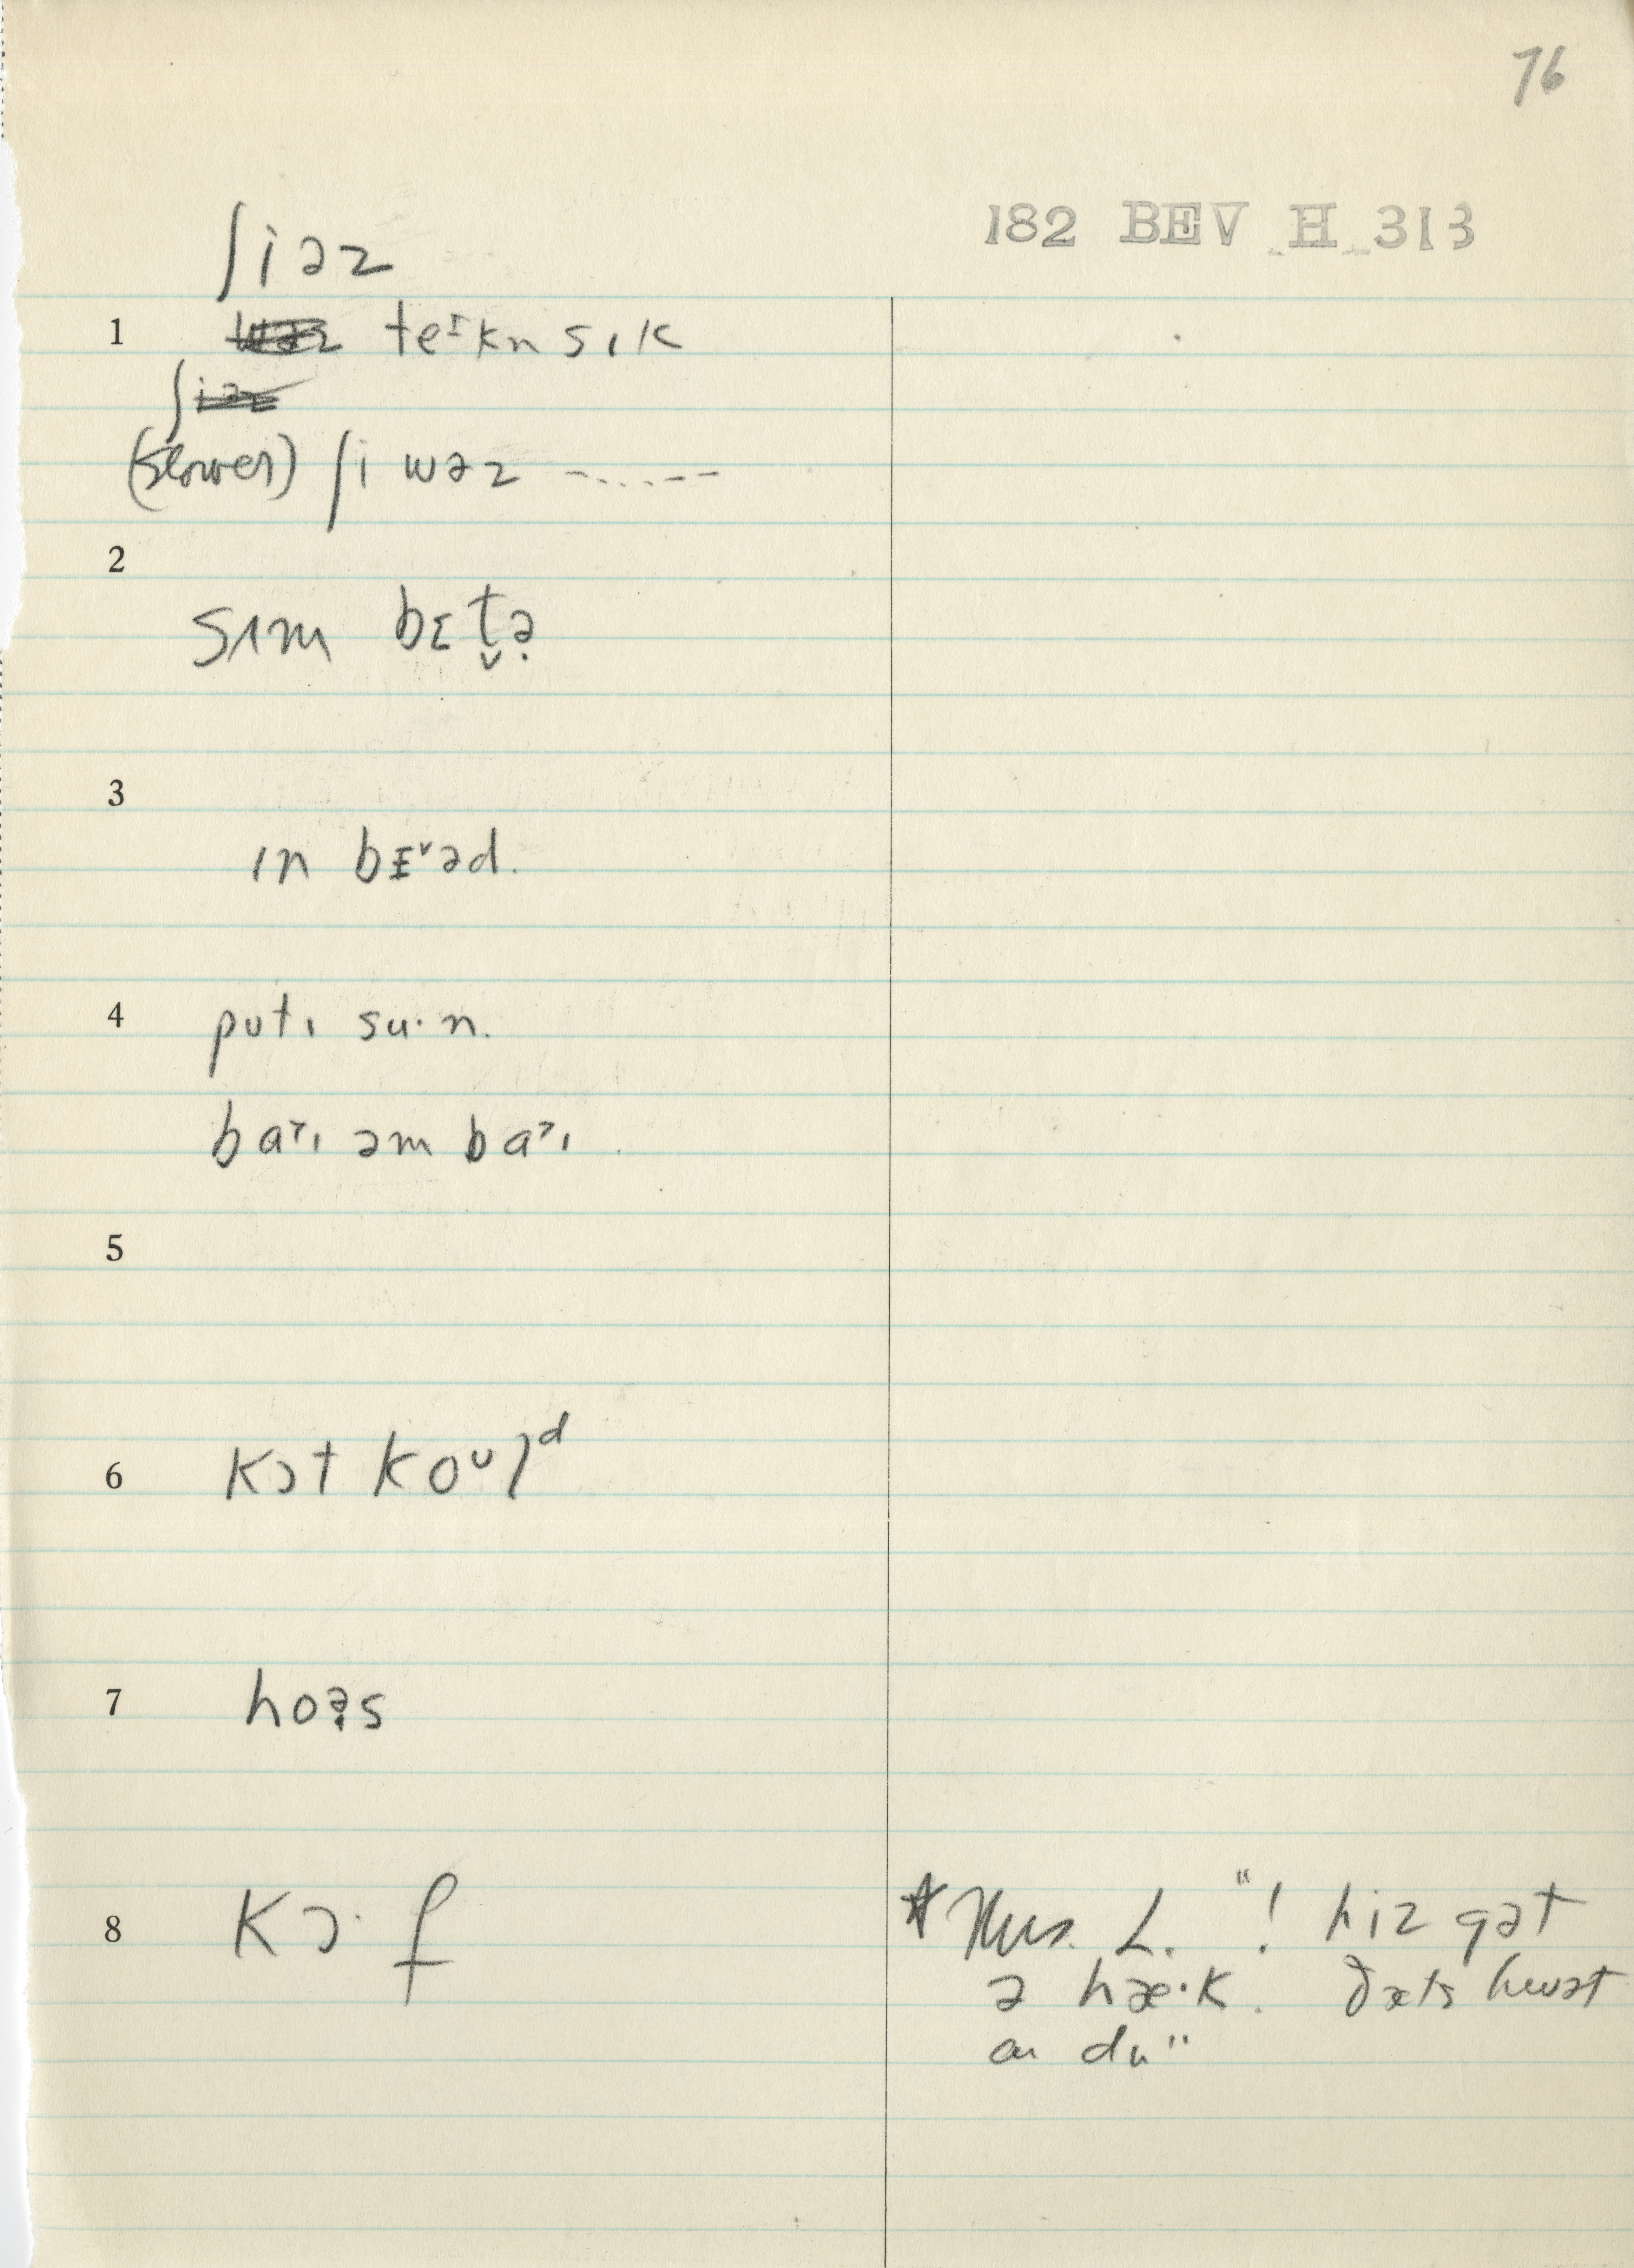 76
182 BEV H 313
ʃiəz
1 teɪkn sɪk
(slower) ʃi wəz --....--
2
sɪm bɛt̬ə̣
3
ɪn bɛ˅əd.
4 putɪ su·n.
baˀɪ əm baˀɪ
5
6 kɔt koᴜlᵈ
7 hoə̣s
8 kɔ·f
* Mrs. L. "! hiz gət
ə hæ·k. ðæts hwət
aɪ du"